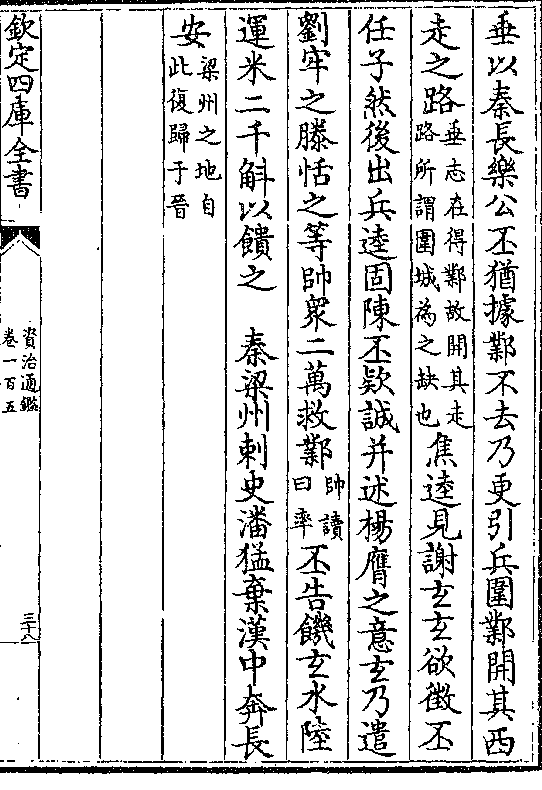 垂以秦長樂公丕猶據鄴不去乃更引兵圍鄴開其西
走之路垂志在得鄴故開其走路所謂圍城為之缺也焦逵見謝玄玄欲徵丕
任子然後出兵逵固陳丕欵誠并述楊膺之意玄乃遣
劉牢之滕恬之等帥衆二萬救鄴帥讀曰率丕告饑玄水陸
運米二千斛以饋之　秦梁州刺史潘猛棄漢中奔長
安梁州之地自此復歸于晉
欽定四庫全書
資治通鑑
卷一百五
三十八